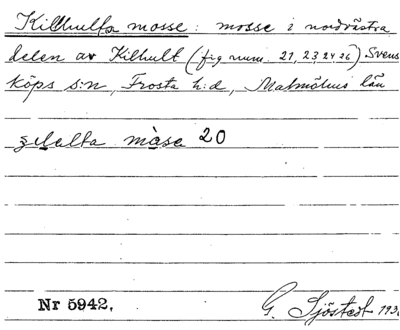 Kilhultsa mosse: mosse i nordvästra
delen av Kilhult (fig num. 21, 23 24 26) Svens
köps s:n, Frosta h:d, Malmöhus län
mase 20
Nr 5942.
G. Sjöstedt 193